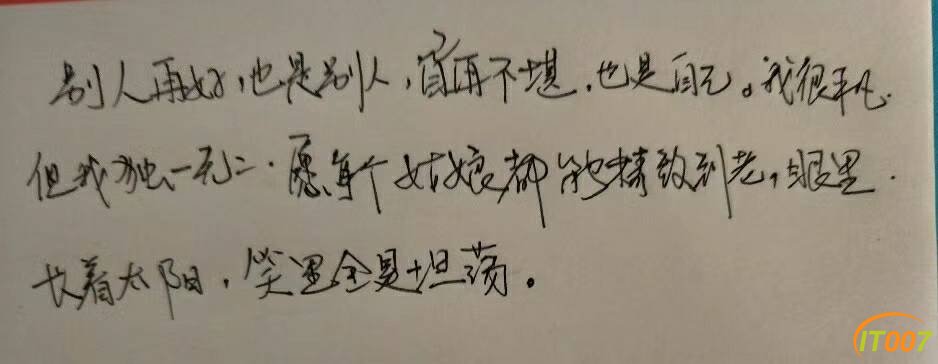 别人再好，也是别人，自己再不堪，也是自己。我很平凡.
但我独一无二.愿每个姑娘都能精致到老，眼里.
长着太阳，笑里全是坦荡。
IT007